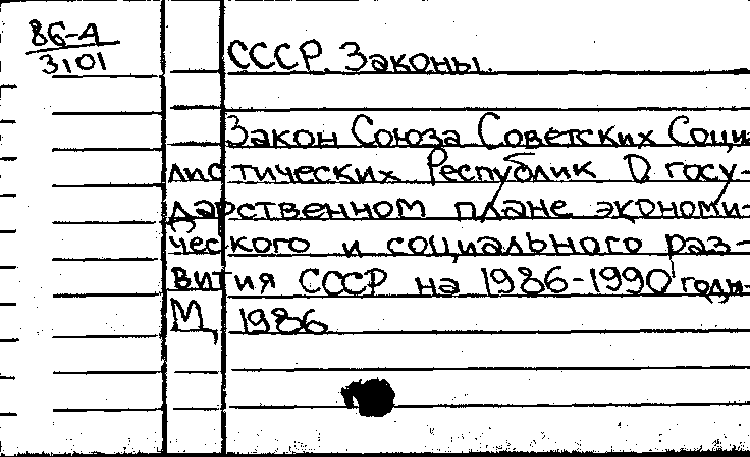 86-4
3101
СССР. Законы.
Закон Союза Советских Соци
листических Республик О госу-
дарственном плане экономи-
ческого и социального раз-
вития СССР на 1986-1990 годы
М, 1986